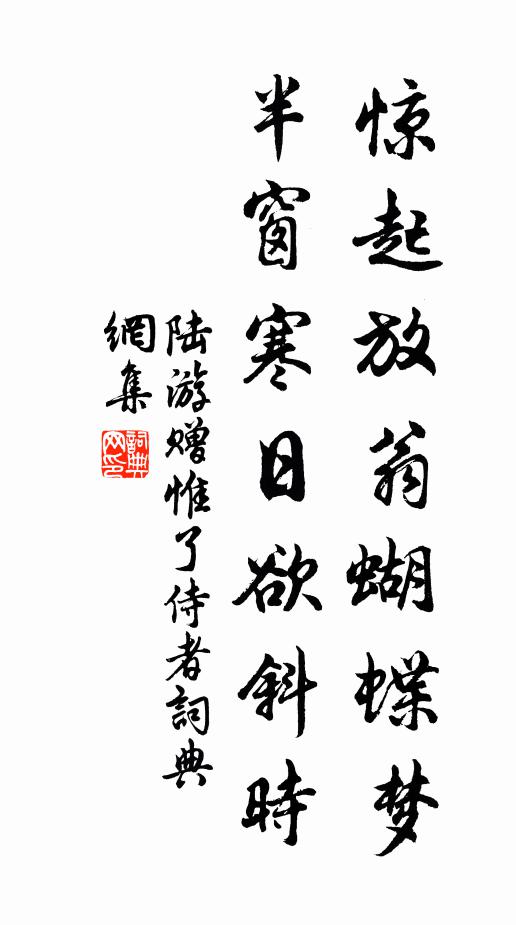 惊起放翁蝴蝶梦
半窗寒日欲斜時
陆游赠惟了侍者詞典
網集
詞典网印